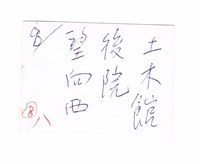 土木館
後院
望向西
8/
8八